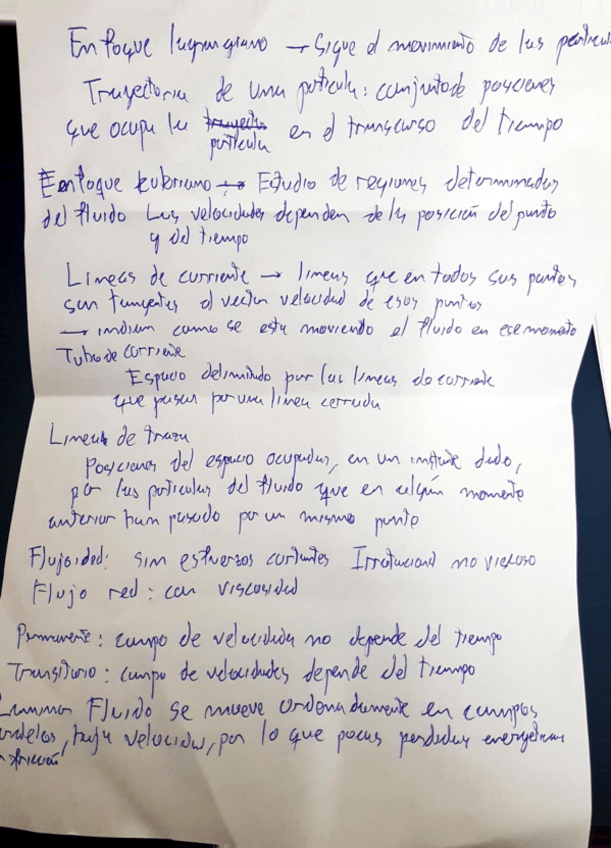 Enfoque lagrangiano → Sigue el movimiento de las particul
Trayectoria de una particula: conjunto de posiciones
que ocupa la trayecto en el transcurso del tiempo
particula
Enfoque Euleriano → Estudio de regiones determinadas
del fluido Las velocidades dependen de la posición del punto
y del tiempo
Lineas de corriente → lineas que en todos sus puntos
son tangentes al vector velocidad de esos puntos
→ indican como se esta moviendo el fluido en ese momento
Tubo de corriente
Espacio delimitado por las lineas de corriente
que pasan por una linea cerrada
Lineas de traza
Posiciones del espacio ocupadas, en un instante dado,
por las particulas del fluido que en algún momento
anterior han pasado por un mismo punto
Flujo ideal: sin esfuerzos cortantes Irrotacional no viscoso
Flujo real: con viscosidad
Permanente: campo de velocidades no depende del tiempo
Transitorio: campo de velocidades depende del tiempo
Laminar Fluido se mueve ordenadamente en campos
ralelos, baja velocidad, por lo que pocas perdidas energeticas
fricción